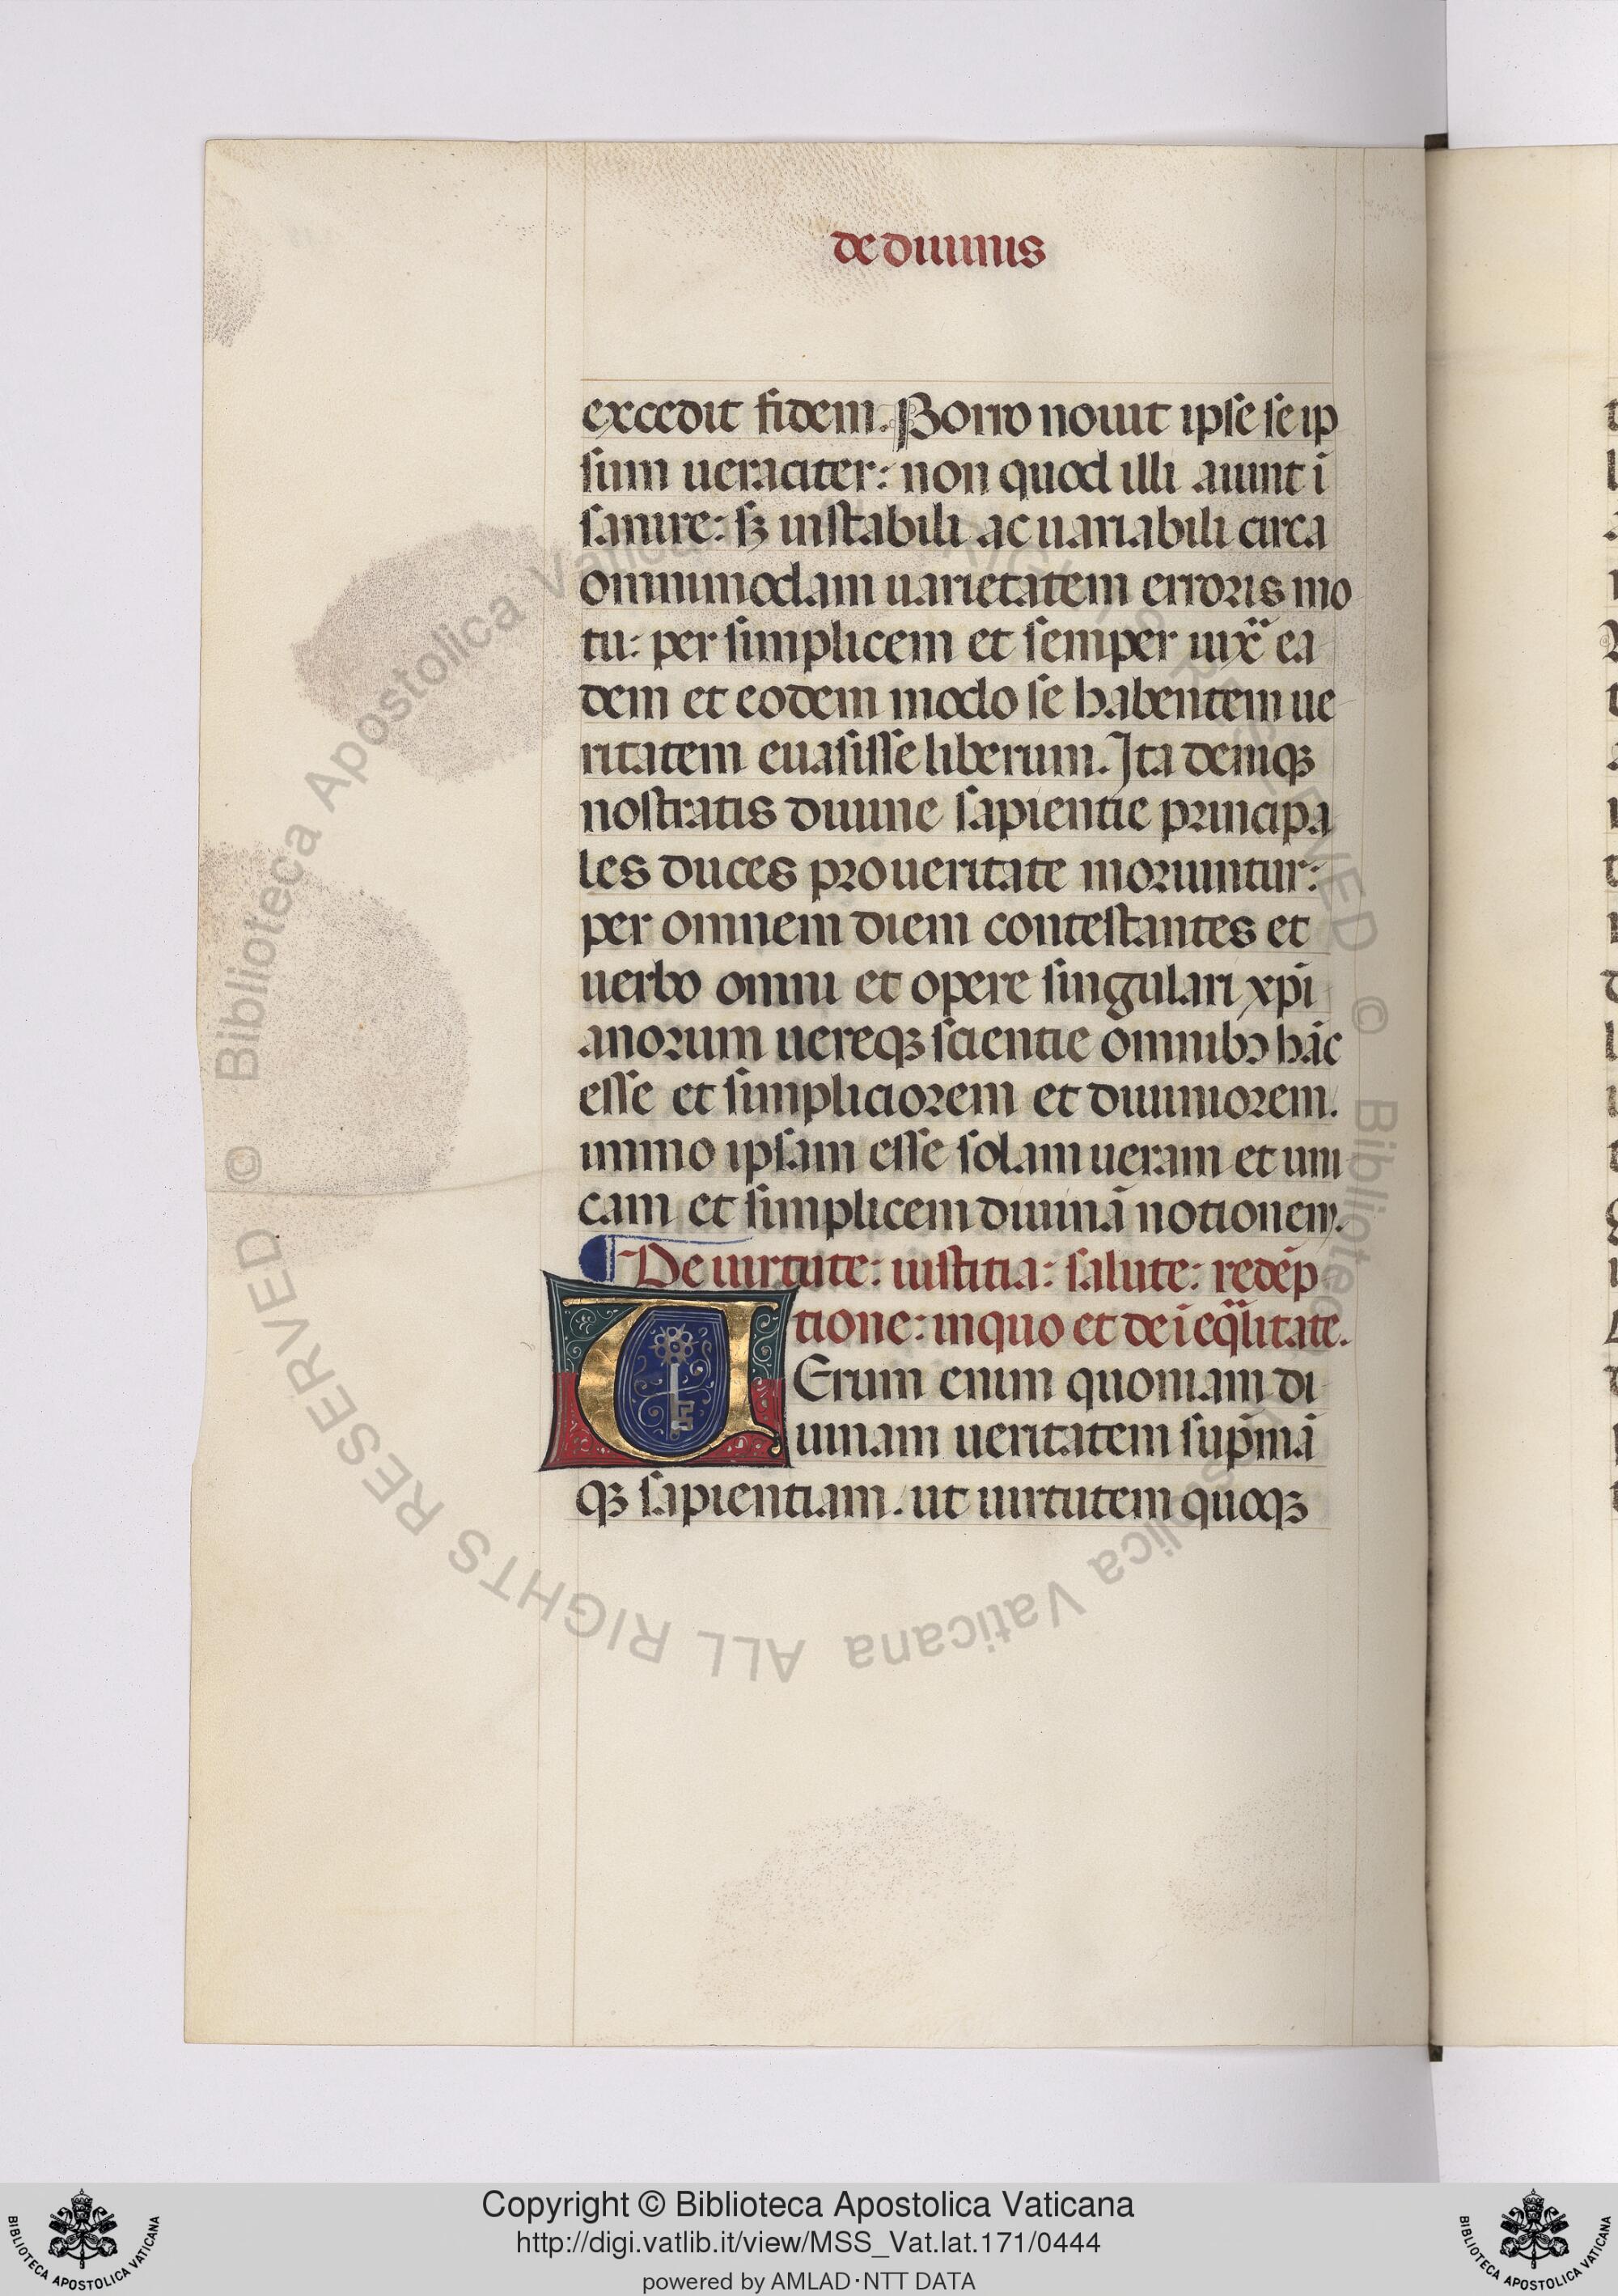 de diuinis
excedit fidem. Porro nouit ipse se ip
sum ueraciter: non quod illi aiunt ī
sanire: sꝫ instabili ac uariabili circa
omnimodam uarietatem erroris mo
tu: per simplicem et semper iuxͣ ea
dem et eodem modo se habentem ue
ritatem euasisse liberum. Ita deniqꝫ
nostratis diuine sapientie principa
les duces pro ueritate moriuntur:
per omnem diem contestantes et
uerbo omni et opere singulari xp̄i
anorum uereqꝫ scientie omnibꝰ hāc
esse et simpliciorem et diuiniorem.
immo ipsam esse solam ueram et uni
cam et simplicem diuinā notionem.
¶ De uirtute: iustitia: salute: redēp
tione: in quo et de ī eqͣlitate.
UErum enim quoniam di
uinam ueritatem sup̄mā
qꝫ sapientiam. ut uirtutem quoqꝫ
© Biblioteca Apostolica Vaticana ALL RIGHTS RESERVED
Copyright © Biblioteca Apostolica Vaticana
http://digi.vatlib.it/view/MSS_Vat.lat.171/0444
powered by AMLAD·NTT DATA
BIBLIOTECA APOSTOLICA VATICANA
BIBLIOTECA APOSTOLICA VATICANA